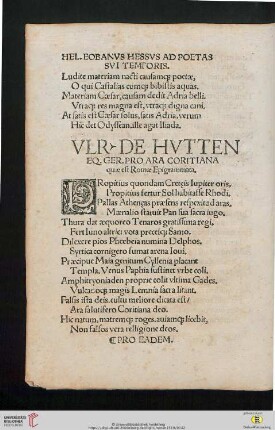 HEL. EOBANVS HESSVS AD POETAS
SVI TEMPORIS.
Ludite materiam nacti causamq; poetæ,
O qui Castalias cumq; bibistis aquas.
Materiam Cæsar, causam dedit Adria belli.
Vtraq; res magna est, vtraq; digna cani.
At satis est Cæsar solus, satis Adria, verum
Hic det Odysseam, ille agat Iliada.
VLR. DE HVTTEN
EQ. GER. PRO ARA CORITIANA
quæ est Romæ Epigrammata.
PRopitius quondam Cretęis Iupiter oris,
Propitius fertur Sol habitasse Rhodi,
Pallas Athenęas præsens respexit ad aras,
Mænalio statuit Pan sua sacra iugo.
Thura dat æquoreo Tenaros gratissima regi,
Fert Iuno alterius vota precesq; Samo.
Dilexere pios Phœbeia numina Delphos,
Syrtica cornigero fumat arena Ioui.
Præcipue Maia genitum Cyllenia placant
Templa. Venus Paphia sustinet vrbe coli.
Amphitryoniaden proprie colit vltima Gades,
Vulcanoq; magis Lemnia sacra litant.
Falsa ista deis, cultu meliore dicata est
Ara salutifero Coritiana deo.
Hic natum, matremq; roges, auiamq; licebit,
Non falsos vera relligione deos.
¶ PRO EADEM.
UNIVERSITÄTS-
BIBLIOTHEK
HEIDELBERG